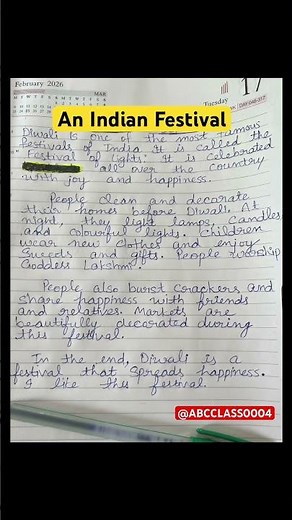 February 2026
MAR
17
Tuesday
An Indian Festival
Diwali is one of the most famous
festivals of India. It is called the
"Festival of Lights". It is celebrated
all over the country
with joy and happiness.
People clean and decorate
their homes before Diwali. At
night, they light lamps, candles
and colourful lights. Children
wear new clothes and enjoy
sweets and gifts. People worship
Goddess Lakshmi.
People also burst crackers and
share happness with friends
and relatives. Markets are
beautifully decorated during
this festival.
In the end, Diwali is a
festival that spreads happiness.
I like this festival.
@ABCCLASS0004